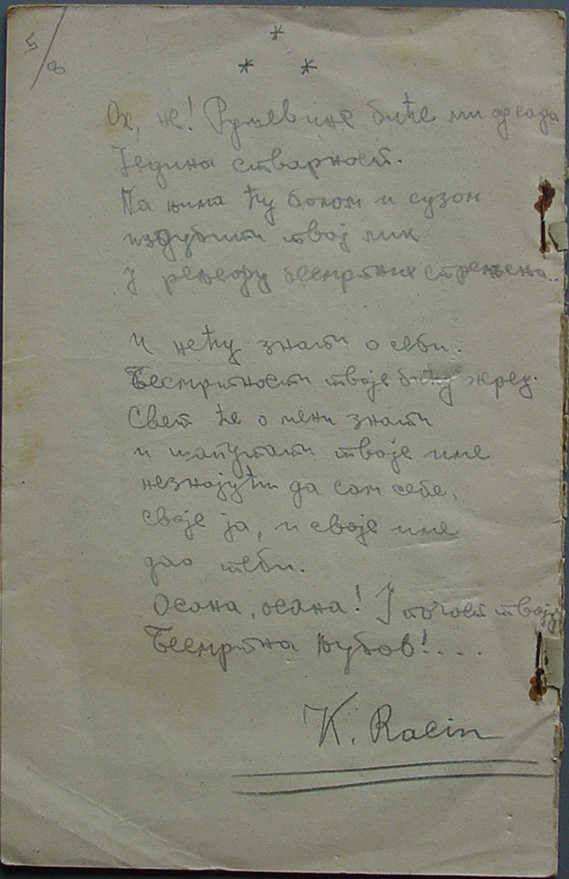 5/8
*
* *
Ох, не! Рушевине биће ми од сада
Једина стварност.
На њима ћу болом и сузом
издубити твој лик
У бесмртних
И нећу знати о себи.
Бесмртности твоје бићу жрец.
Свет ће о мени знати
и шапутати твоје име
незнајући да сам себе,
своје ја, и своје име
дао теби.
Осана, осана! У почаст твоју
Бесмртна Љубов!...
K. Racin